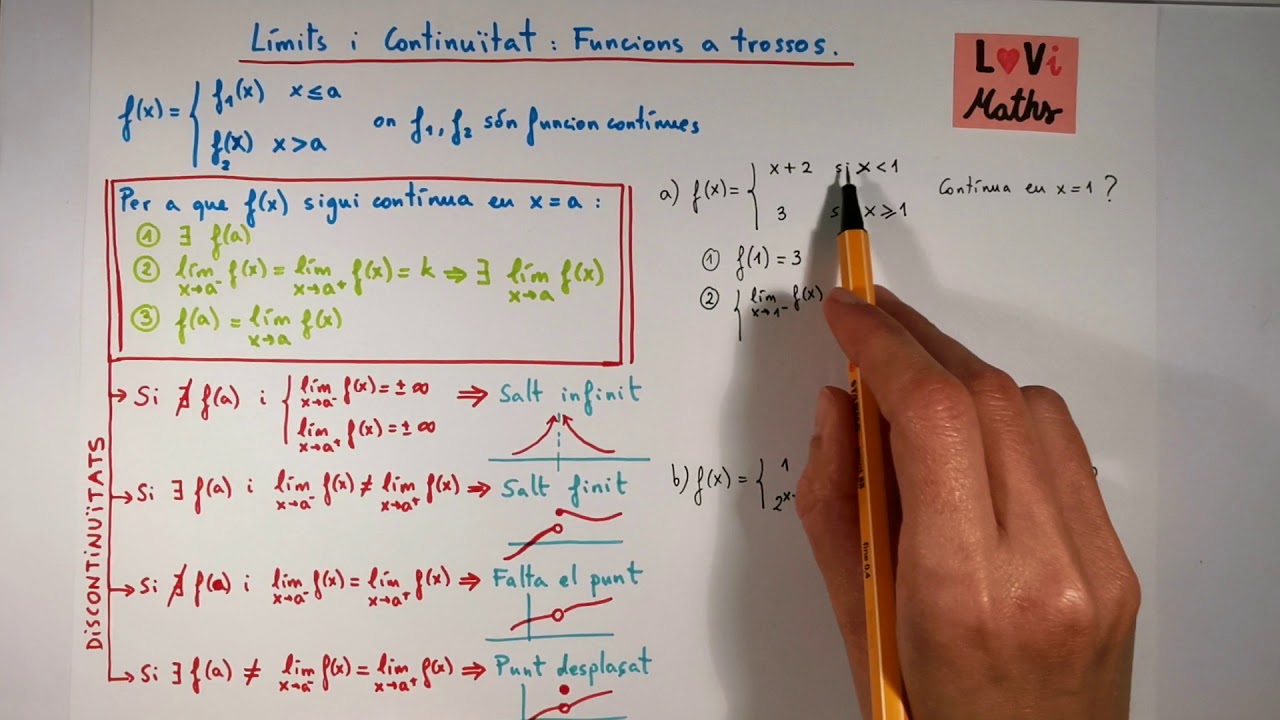 Límits i Continuïtat: Funcions a trossos.
L♥Vi
Maths
f(x) = { f₁(x) x ≤ a
f₂(x) x > a
on f₁, f₂ són funcion contínues
Per a que f(x) sigui contínua en x = a :
① ∃ f(a)
② lim x→a⁻ f(x) = lim x→a⁺ f(x) = k ⇒ ∃ lim x→a f(x)
③ f(a) = lim x→a f(x)
DISCONTINUÏTATS
Si ∄ f(a) i { lim x→a⁻ f(x) = ± ∞ ⇒ Salt infinit
lim x→a⁺ f(x) = ± ∞
Si ∃ f(a) i lim x→a⁻ f(x) ≠ lim x→a⁺ f(x) ⇒ Salt finit
Si ∄ f(a) i lim x→a⁻ f(x) = lim x→a⁺ f(x) ⇒ Falta el punt
Si ∃ f(a) ≠ lim x→a⁻ f(x) = lim x→a⁺ f(x) ⇒ Punt desplaşat
a) f(x) = { x + 2 si x < 1
3 s x ⩾ 1
Contínua en x = 1 ?
① f(1) = 3
② { lim x→1⁻ f(x)
b) f(x) = { 1
2ˣ⁻
?